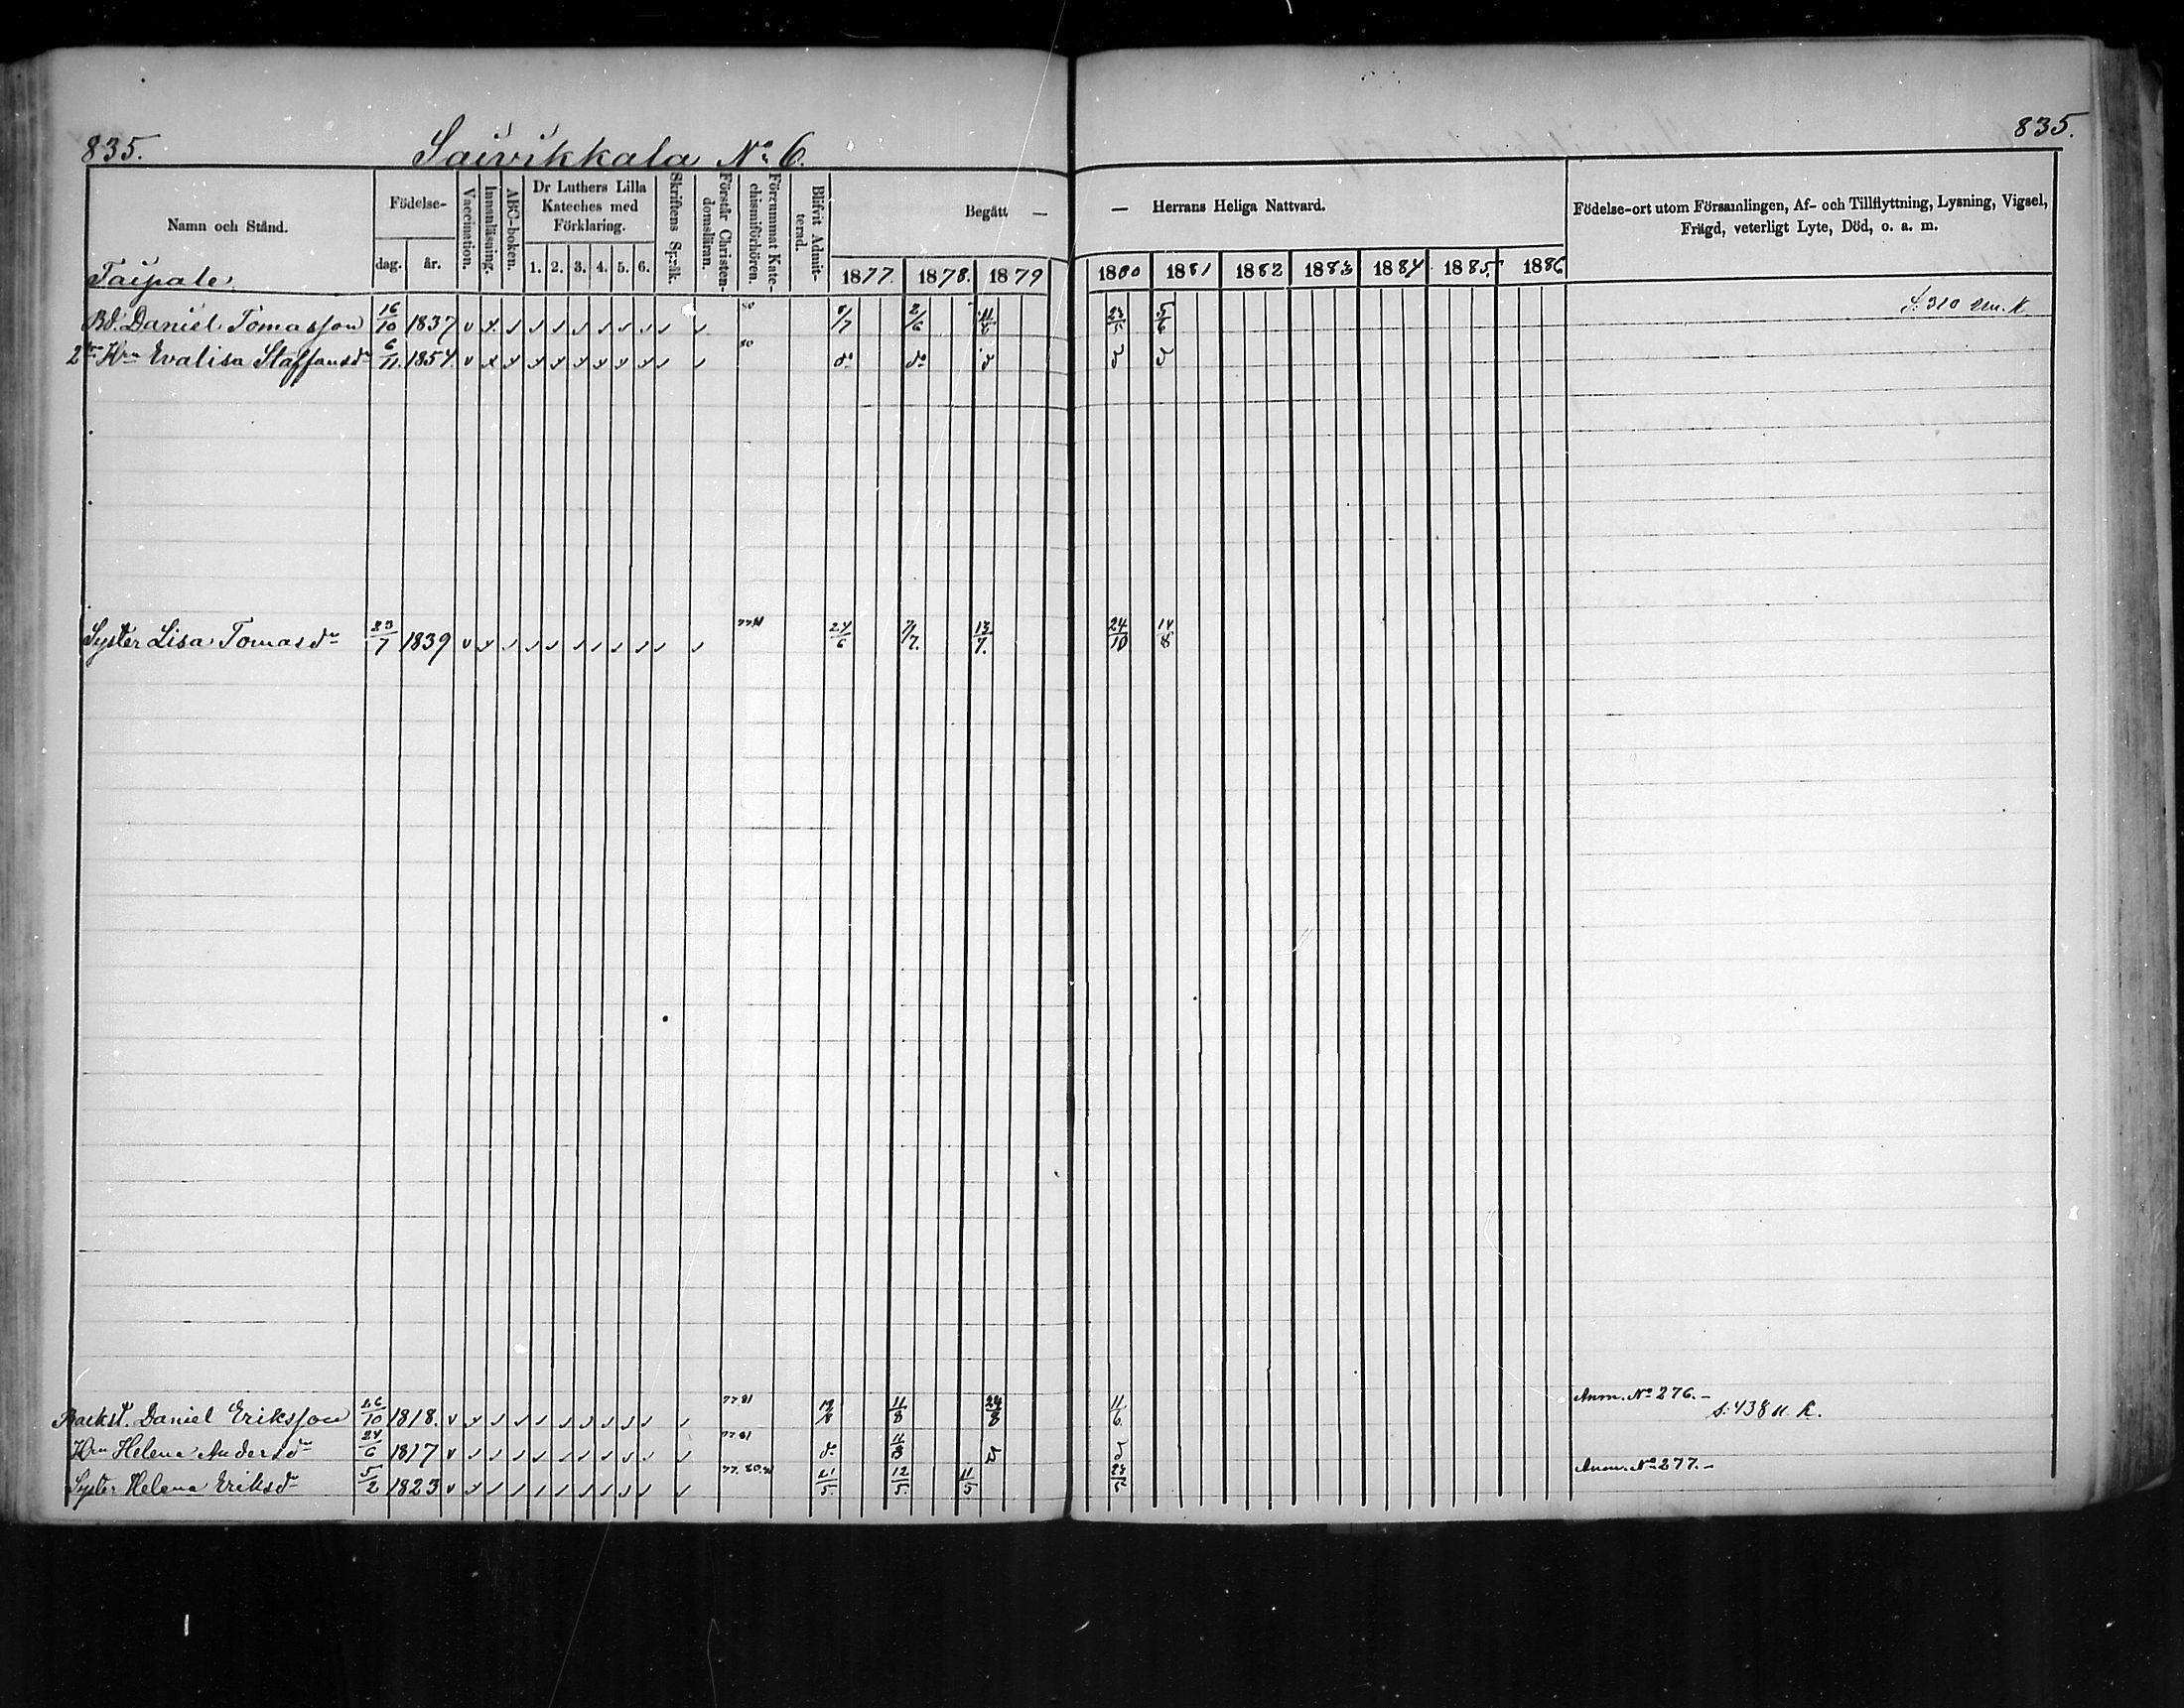 835.
Saivikkala No 6.
835.
Namn och Stånd.
Födelse-
dag. år.
Vaccination.
Innanläsning.
ABC-boken.
Dr Luthers Lilla Kateches med Förklaring.
1. 2. 3. 4. 5. 6.
Skriftens Språk.
Förstår Christen-domsläran.
Försummat Kate-chismiförhören.
Blifvit Admit-terad.
Begått —
— Herrans Heliga Nattvard.
1877. 1878. 1879 1880 1881 1882 1883 1884 1885 1886
Födelse-ort utom Församlingen, Af- och Tillflyttning, Lysning, Vigsel,
Frägd, veterligt Lyte, Död, o. a. m.
Taipale.
Bd. Daniel Tomasson 16/10 1837 v x 80 2/6 11/5 23/5 5/6 S. 310
2 Hn Evalisa Staffansdr 6/11. 1854. v x 80 do do d d d
Syster Lisa Tomasdr 23/7 1839 v x 24/6 7/7. 13/7. 24/10 14/8
Backst. Daniel Eriksson 26/10 1818. v 77 81 11/8 24/8 11/6 Anm. No 276.- s. 438 u. K.
Hn Helena Andersdr 24/6 1817 v 77 81 d. 11/8 d d
Syster Helena Eriksdr 5/2 1823 v 77. 80. 81 21/5. 12/5. 11/5 23/5 Anm. No 277.-